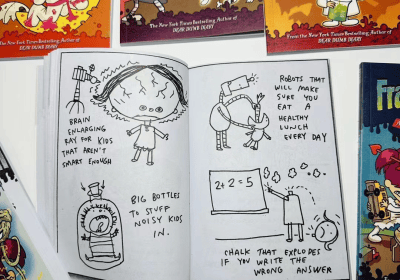 The New York Times Bestselling Author of
DEAR DUMB DIARY
The New York Times Bestselling Author of
DEAR DUMB DIARY
From the New York Times Bestselling Author of
DEAR DUMB DIARY
BRAIN
ENLARGING
RAY FOR KIDS
THAT AREN'T
SMART ENOUGH
BIG BOTTLES
TO STUFF
NOISY KIDS
IN.
ROBOTS THAT
WILL MAKE
SURE YOU
EAT A
HEALTHY
LUNCH
EVERY DAY
2+2=5
CHALK THAT EXPLODES
IF YOU WRITE THE
WRONG ANSWER